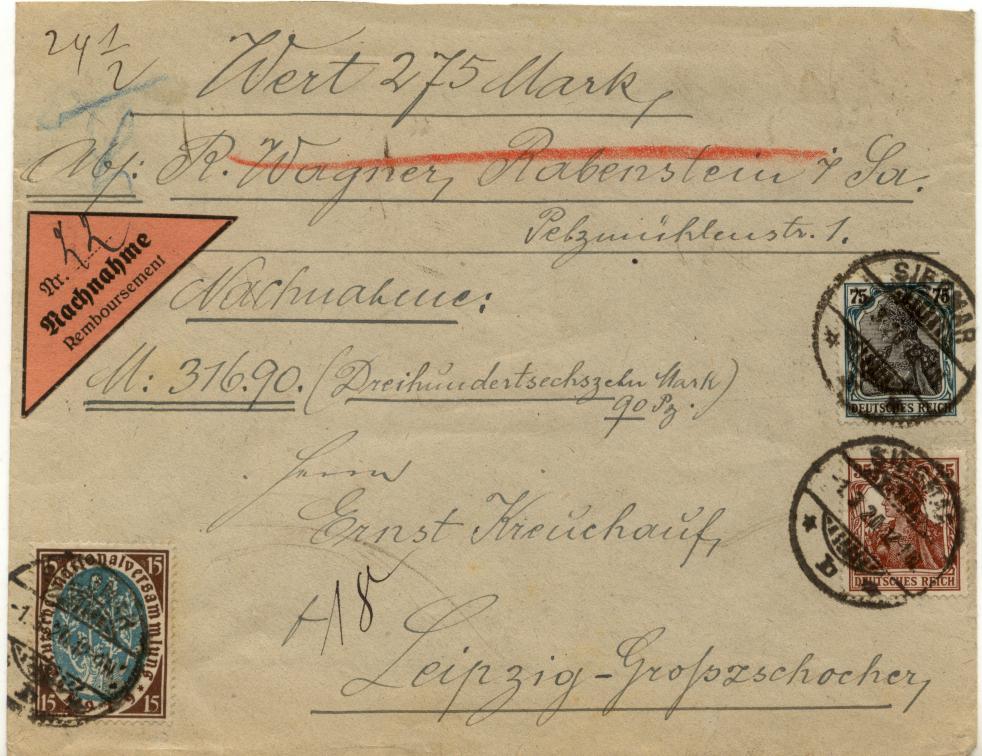 24 1/2
Wert 275 Mark,
Abs: R. Wagner, Rabenstein i/ Sa.
Pelzmühlenstr. 1.
Nr. 22
Nachnahme
Remboursement
Nachnahme:
M: 316.90. (Dreihundertsechszehn Mark)
90 Pf.
Herrn
Ernst Kreuchauf,
18
Leipzig-Großzschocher,
75 75
DEUTSCHES REICH
SIEGMAR
35 35
DEUTSCHES REICH
SIEGMAR
b
15 15
Deutsche Nationalversammlung
1919
15 15